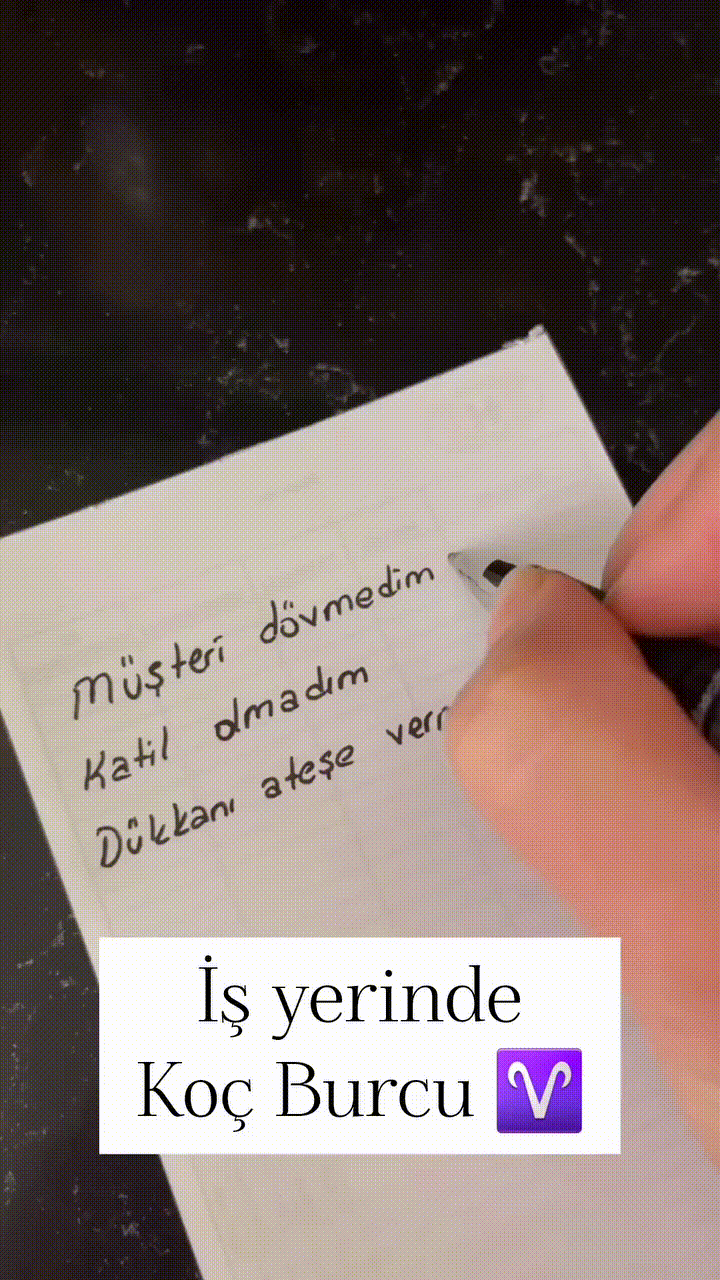 Müşteri dövmedim
Katil olmadım
Dükkanı ateşe
İş yerinde
Koç Burcu ♈